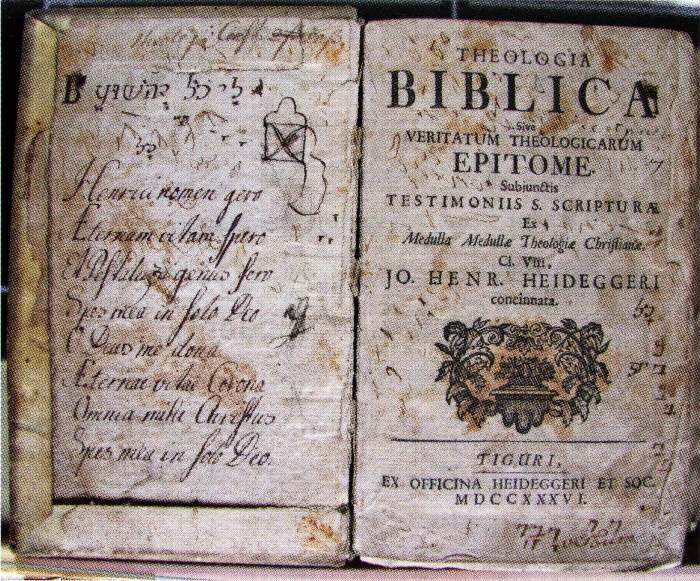 Henrici nomen gero
Æternam vitam spero
Et Pestaluzæ genus fero
Spes mea in solo Deo
Deus me dona
Æternae vitae Corona
Omnia mihi Christus
Spes mea in solo Deo.
THEOLOGIA
BIBLICA
Sive
VERITATUM THEOLOGICARUM
EPITOME.
Subjunctis
TESTIMONIIS S. SCRIPTURÆ
Ex
Medulla Medullæ Theologiæ Christianæ,
Cl. Viri,
JO. HENR. HEIDEGGERI
concinnata.
TIGURI,
EX OFFICINA HEIDEGGERI ET SOC.
MDCCXXXVI.